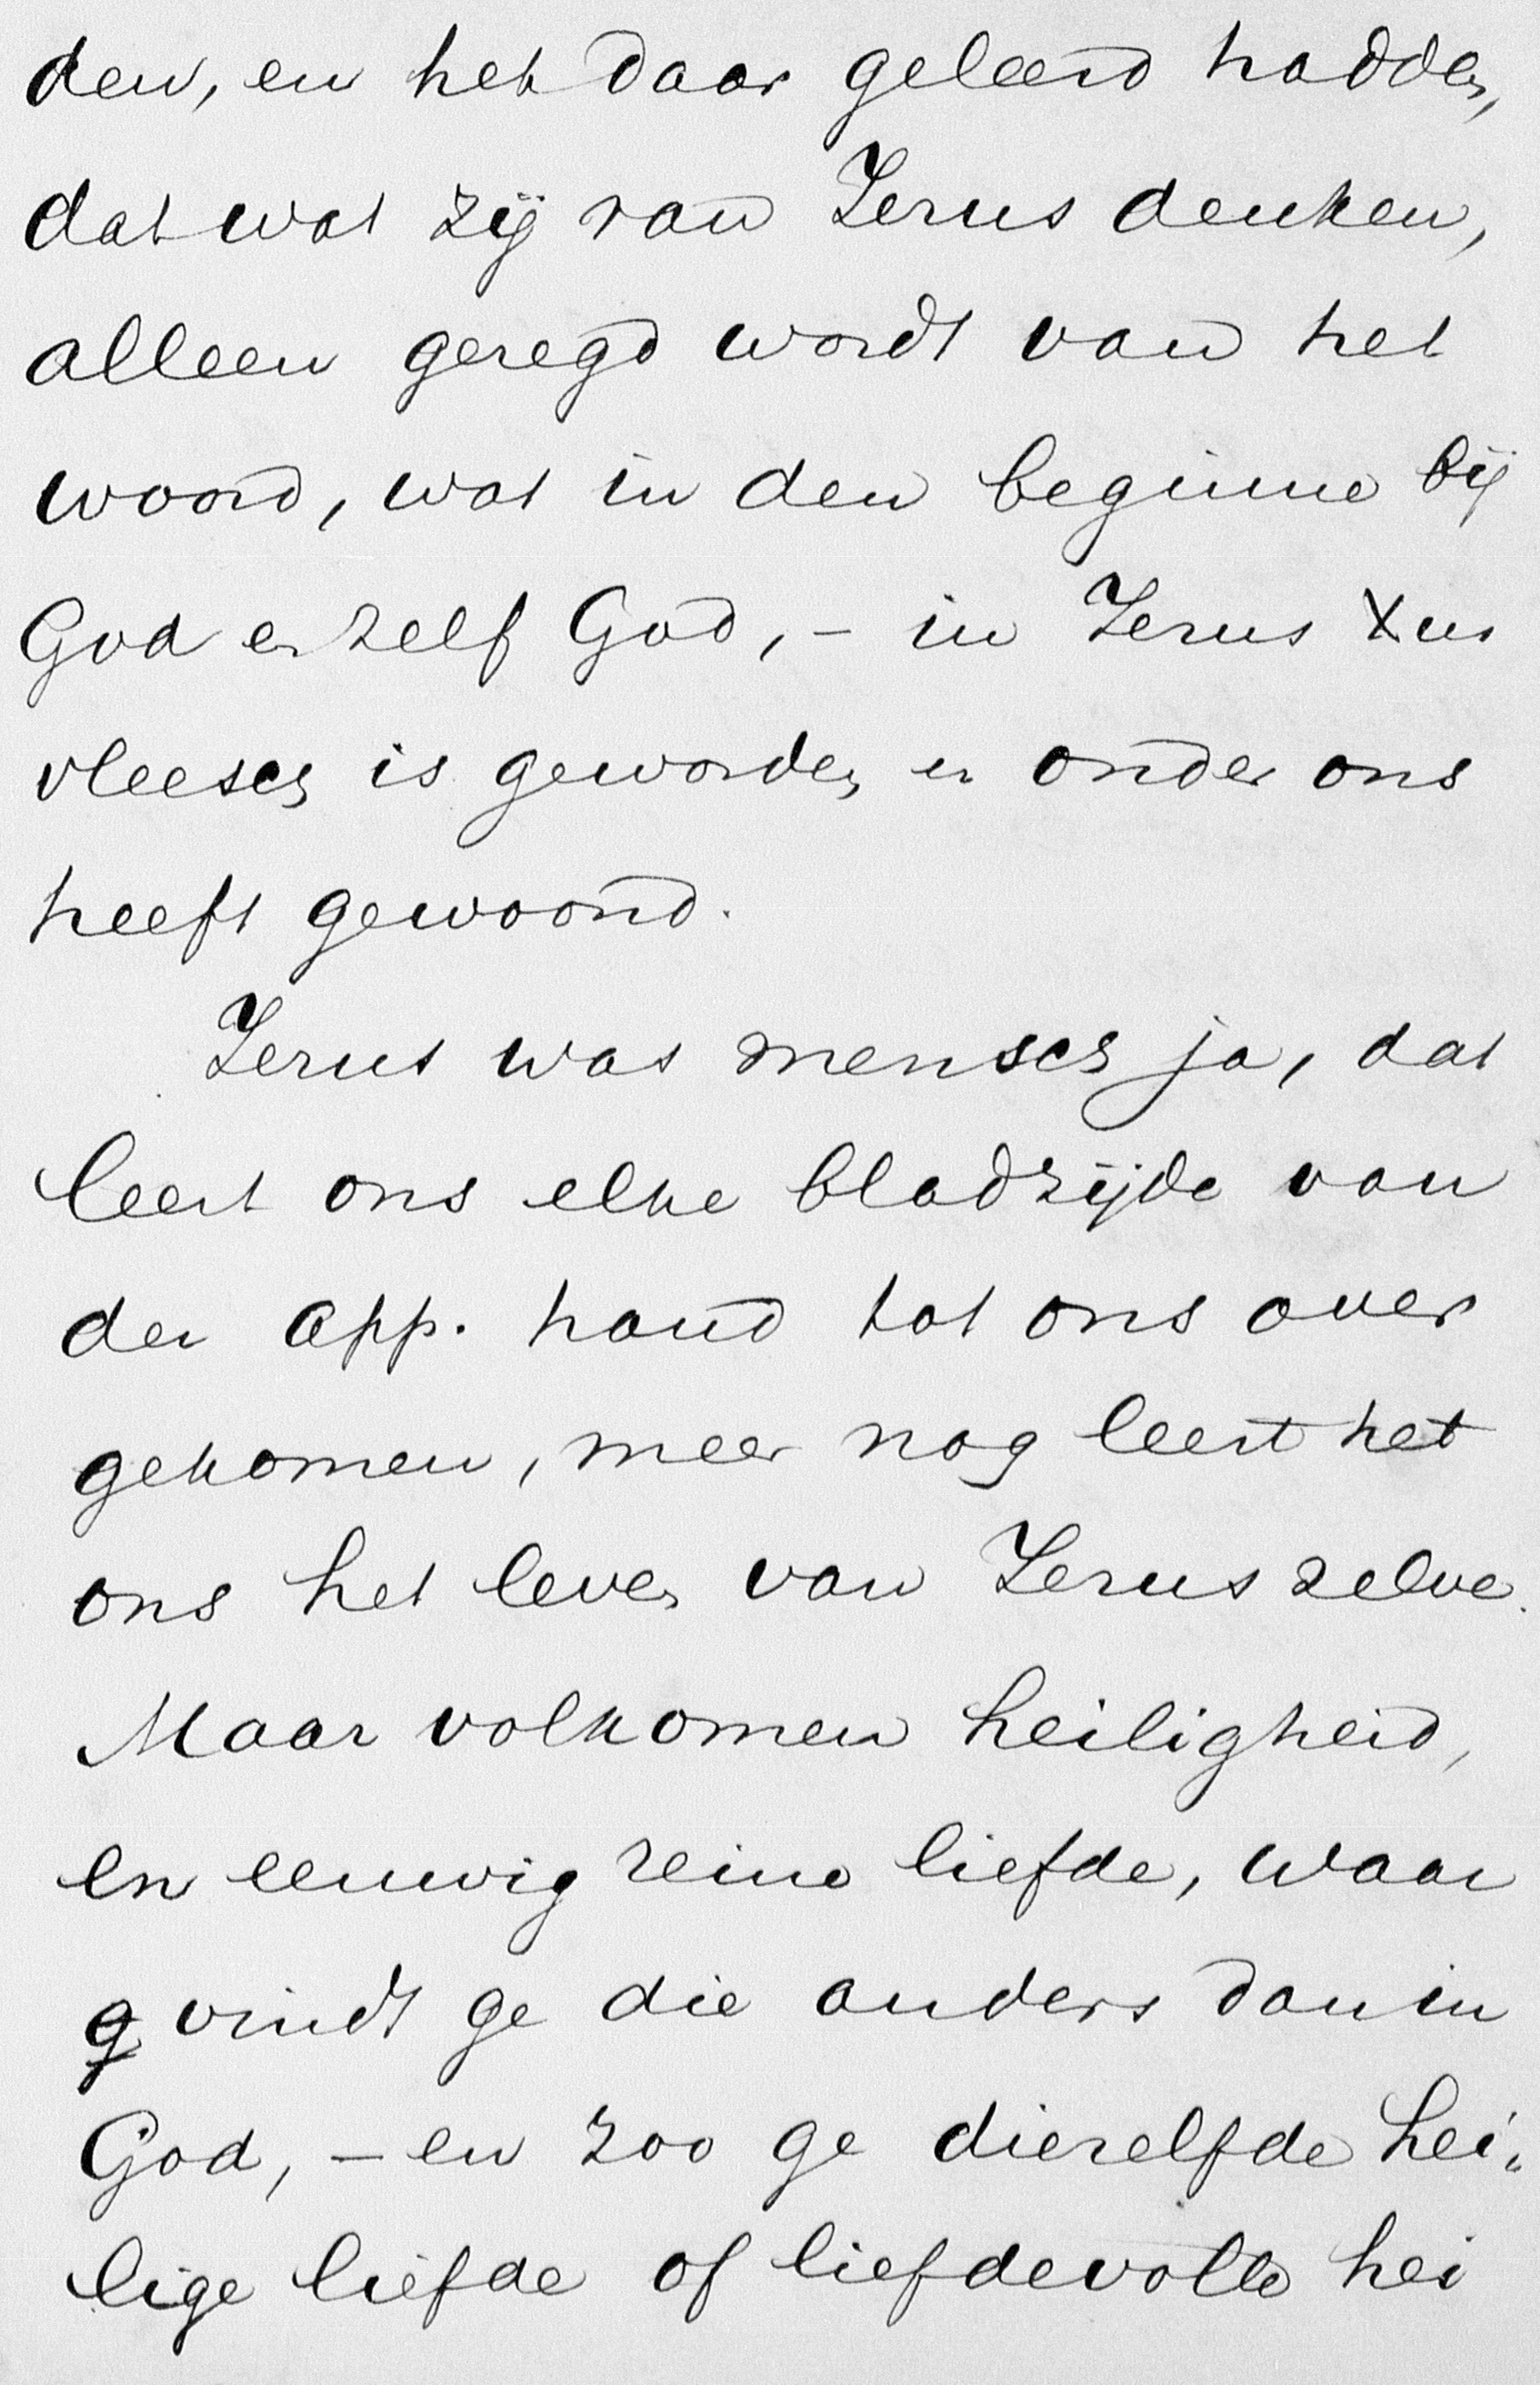 den, en het daar geleerd hadden,
dat wat zij van Jezus denken,
alleen gezegd wordt van het
woord, wat in den beginne bij
God en zelf God, – in Jezus Xus
vleesch is geworden en onder ons
heeft gewoond.
Jezus was mensch ja, dat
leert ons elke bladzijde van
der app. hand tot ons over
gekomen, meer nog leert het
ons het leven van Jezus zelve.
Maar volkomen heiligheid,
en eeuwig reine liefde, waar
g vindt ge die anders dan in
God, – en zoo ge diezelfde hei„
lige liefde of liefdevolle hei